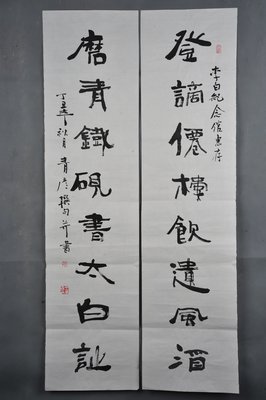 李白紀念館惠存
登謫僊樓飲遺風酒
磨青鐵硯書太白訨
丁丑年秋月青撰句并書